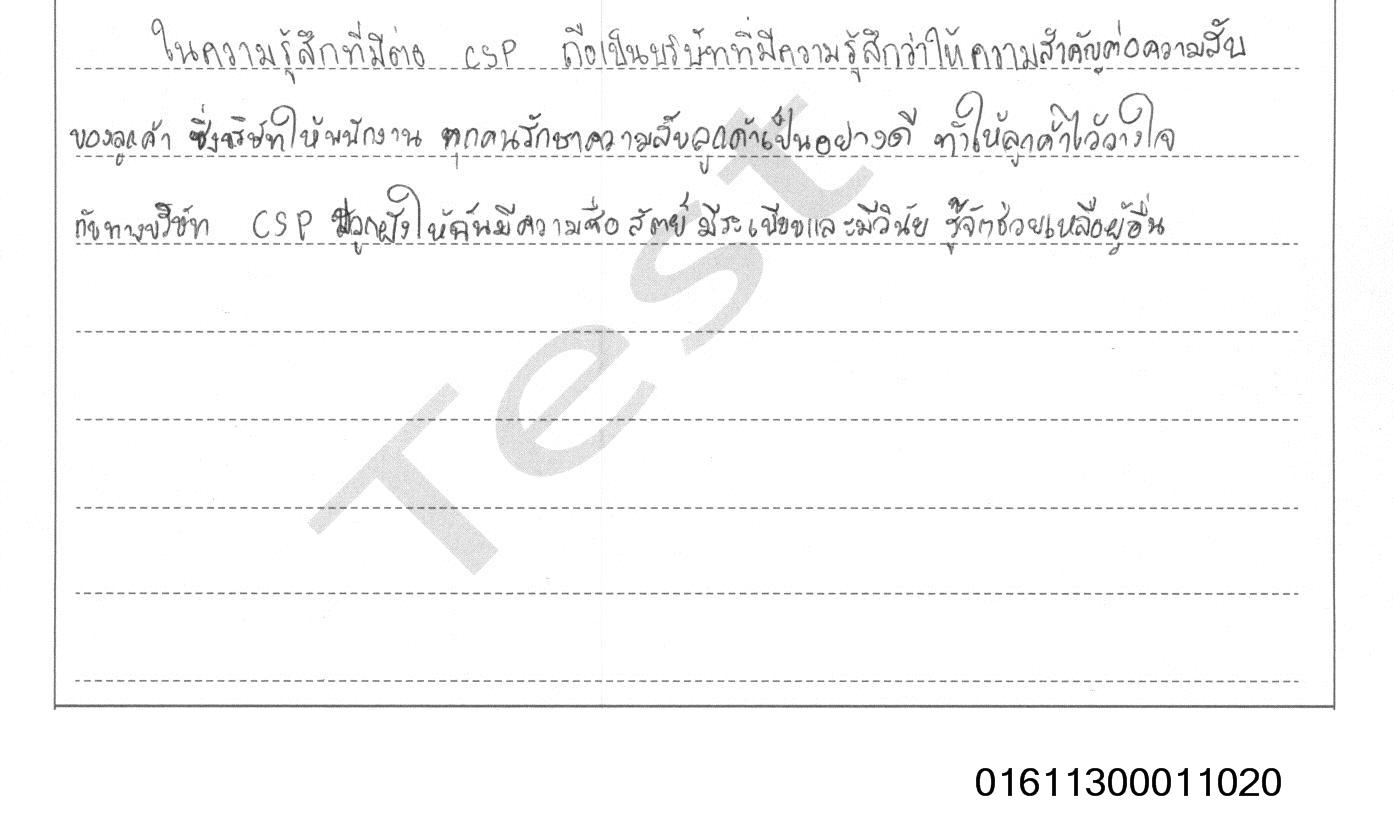 ในความรู้สึกที่มีต่อ CSP ถือเป็นบริษัทที่มีความรู้สึกว่าให้ความสำคัญต่อความลับ
ของลูกค้า ซึ่งบริษัทให้พนักงาน ทุกคนรักษาความลับลูกค้าเป็นอย่างดี ทำให้ลูกค้าไว้วางใจ
กับทางบริษัท CSP ปลูกฝังให้ฉันมีความซื่อสัตย์ มีระเบียบและมีวินัย รู้จักช่วยเหลือผู้อื่น
Test
01611300011020